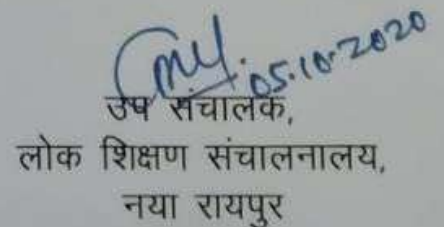 05.10.2020
उप संचालक,
लोक शिक्षण संचालनालय,
नया रायपुर